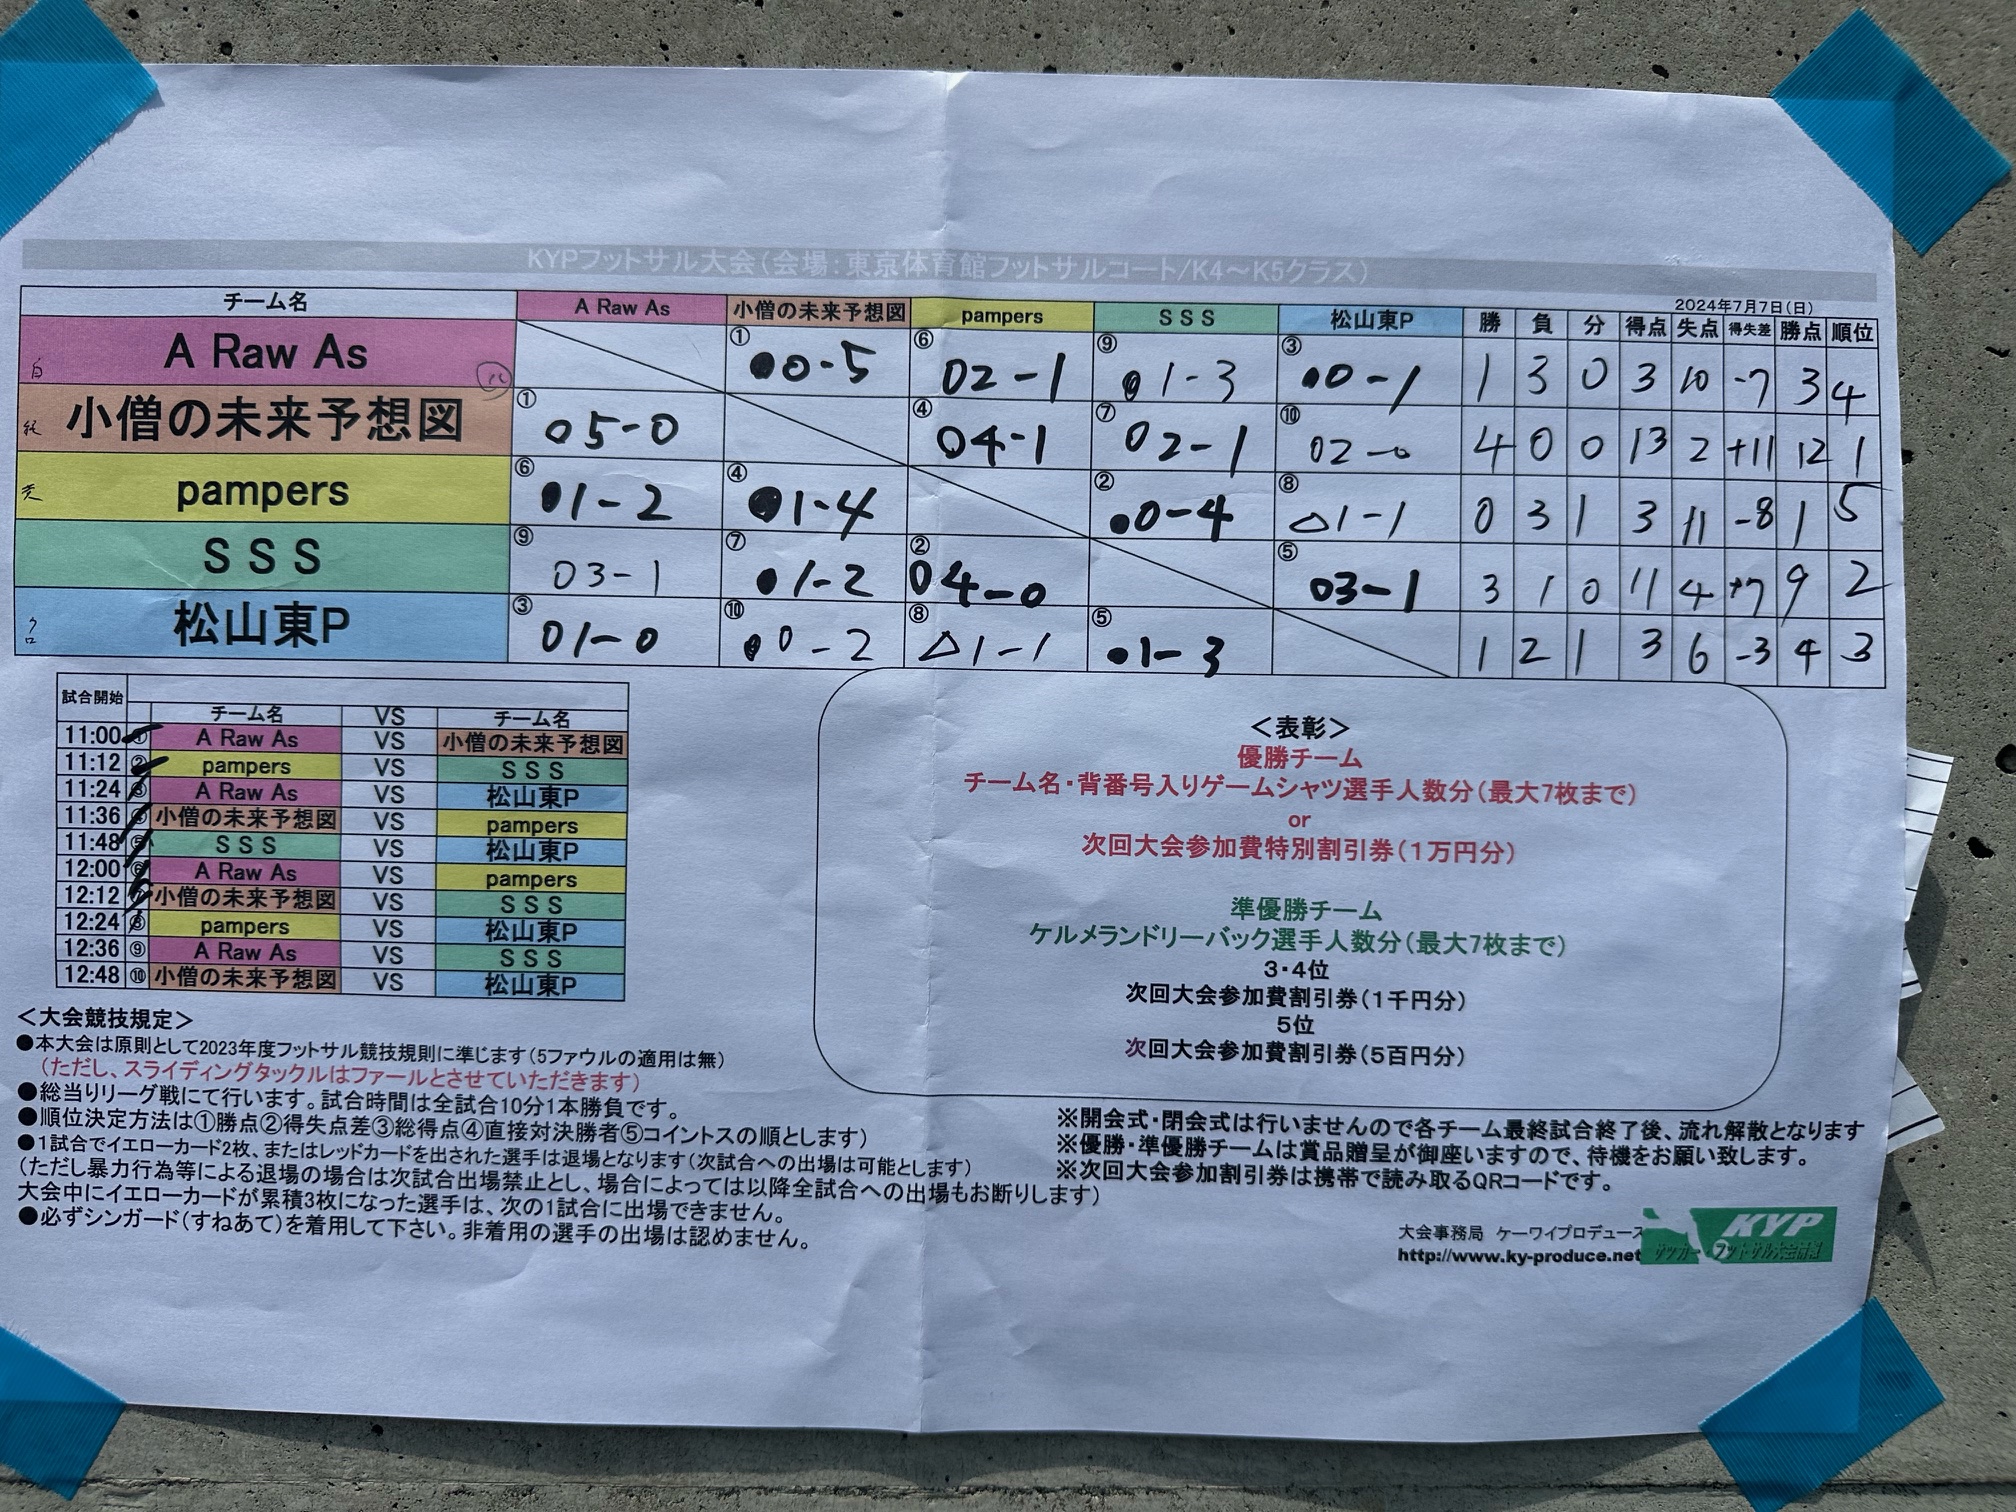 KYPフットサル大会(会場:東京体育館フットサルコート/K4~K5クラス)
2024年7月7日(日)
チーム名 A Raw As 小僧の未来予想図 pampers SSS 松山東P 勝 負 分 得点 失点 得失差 勝点 順位
白 A Raw As ① ●0-5 ⑥ ○2-1 ⑨ ●1-3 ③ ●0-1 1 3 0 3 10 -7 3 4
小僧の未来予想図 ① ○5-0 ④ ○4-1 ⑦ ○2-1 ⑩ ○2-0 4 0 0 13 2 +11 12 1
pampers ⑥ ●1-2 ④ ●1-4 ② ●0-4 ⑧ △1-1 0 3 1 3 11 -8 1 5
SSS ⑨ ○3-1 ⑦ ●1-2 ② ○4-0 ⑤ ○3-1 3 1 0 11 4 +7 9 2
クロ 松山東P ③ ○1-0 ⑩ ●0-2 ⑧ △1-1 ⑤ ●1-3 1 2 1 3 6 -3 4 3
試合開始
チーム名 VS チーム名
11:00 ① A Raw As VS 小僧の未来予想図
11:12 ② pampers VS SSS
11:24 ③ A Raw As VS 松山東P
11:36 ④ 小僧の未来予想図 VS pampers
11:48 ⑤ SSS VS 松山東P
12:00 ⑥ A Raw As VS pampers
12:12 ⑦ 小僧の未来予想図 VS SSS
12:24 ⑧ pampers VS 松山東P
12:36 ⑨ A Raw As VS SSS
12:48 ⑩ 小僧の未来予想図 VS 松山東P
<表彰>
優勝チーム
チーム名・背番号入りゲームシャツ選手人数分(最大7枚まで)
or
次回大会参加費特別割引券(1万円分)
準優勝チーム
ケルメランドリーバック選手人数分(最大7枚まで)
3・4位
次回大会参加費割引券(1千円分)
5位
次回大会参加費割引券(5百円分)
<大会競技規定>
●本大会は原則として2023年度フットサル競技規則に準じます(5ファウルの適用は無)
(ただし、スライディングタックルはファールとさせていただきます)
●総当りリーグ戦にて行います。試合時間は全試合10分1本勝負です。
●順位決定方法は①勝点②得失点差③総得点④直接対決勝者⑤コイントスの順とします)
●1試合でイエローカード2枚、またはレッドカードを出された選手は退場となります(次試合への出場は可能とします)
(ただし暴力行為等による退場の場合は次試合出場禁止とし、場合によっては以降全試合への出場もお断りします)
大会中にイエローカードが累積3枚になった選手は、次の1試合に出場できません。
●必ずシンガード(すねあて)を着用して下さい。非着用の選手の出場は認めません。
※開会式・閉会式は行いませんので各チーム最終試合終了後、流れ解散となります
※優勝・準優勝チームは賞品贈呈が御座いますので、待機をお願い致します。
※次回大会参加割引券は携帯で読み取るQRコードです。
大会事務局 ケーワイプロデュース
http://www.ky-produce.net
KYP
サッカー フットサル大会情報